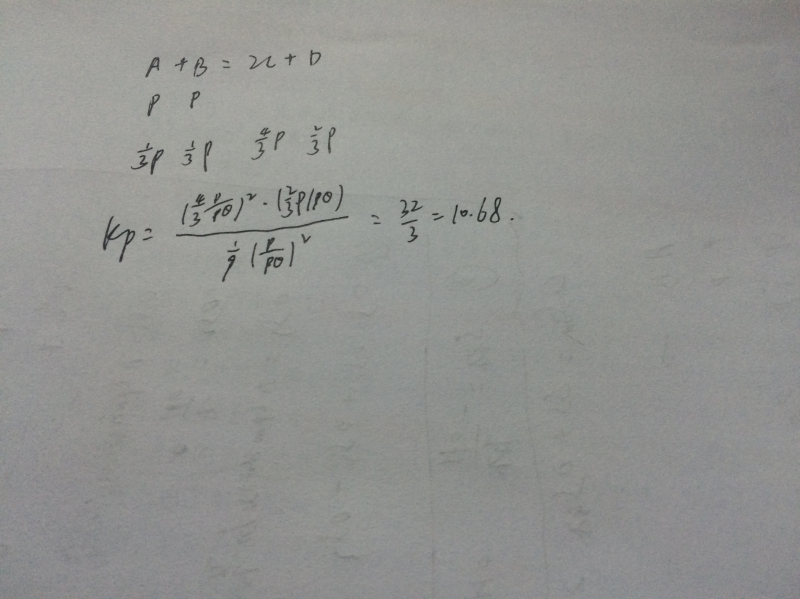 A + B = 2C + D
P P
1/3 P 1/3 P 4/3 P 2/3 P
Kp = ((4/3 P/Pθ)² · (2/3 P/Pθ)) / (1/9 (P/Pθ)²) = 32/3 = 10.68.